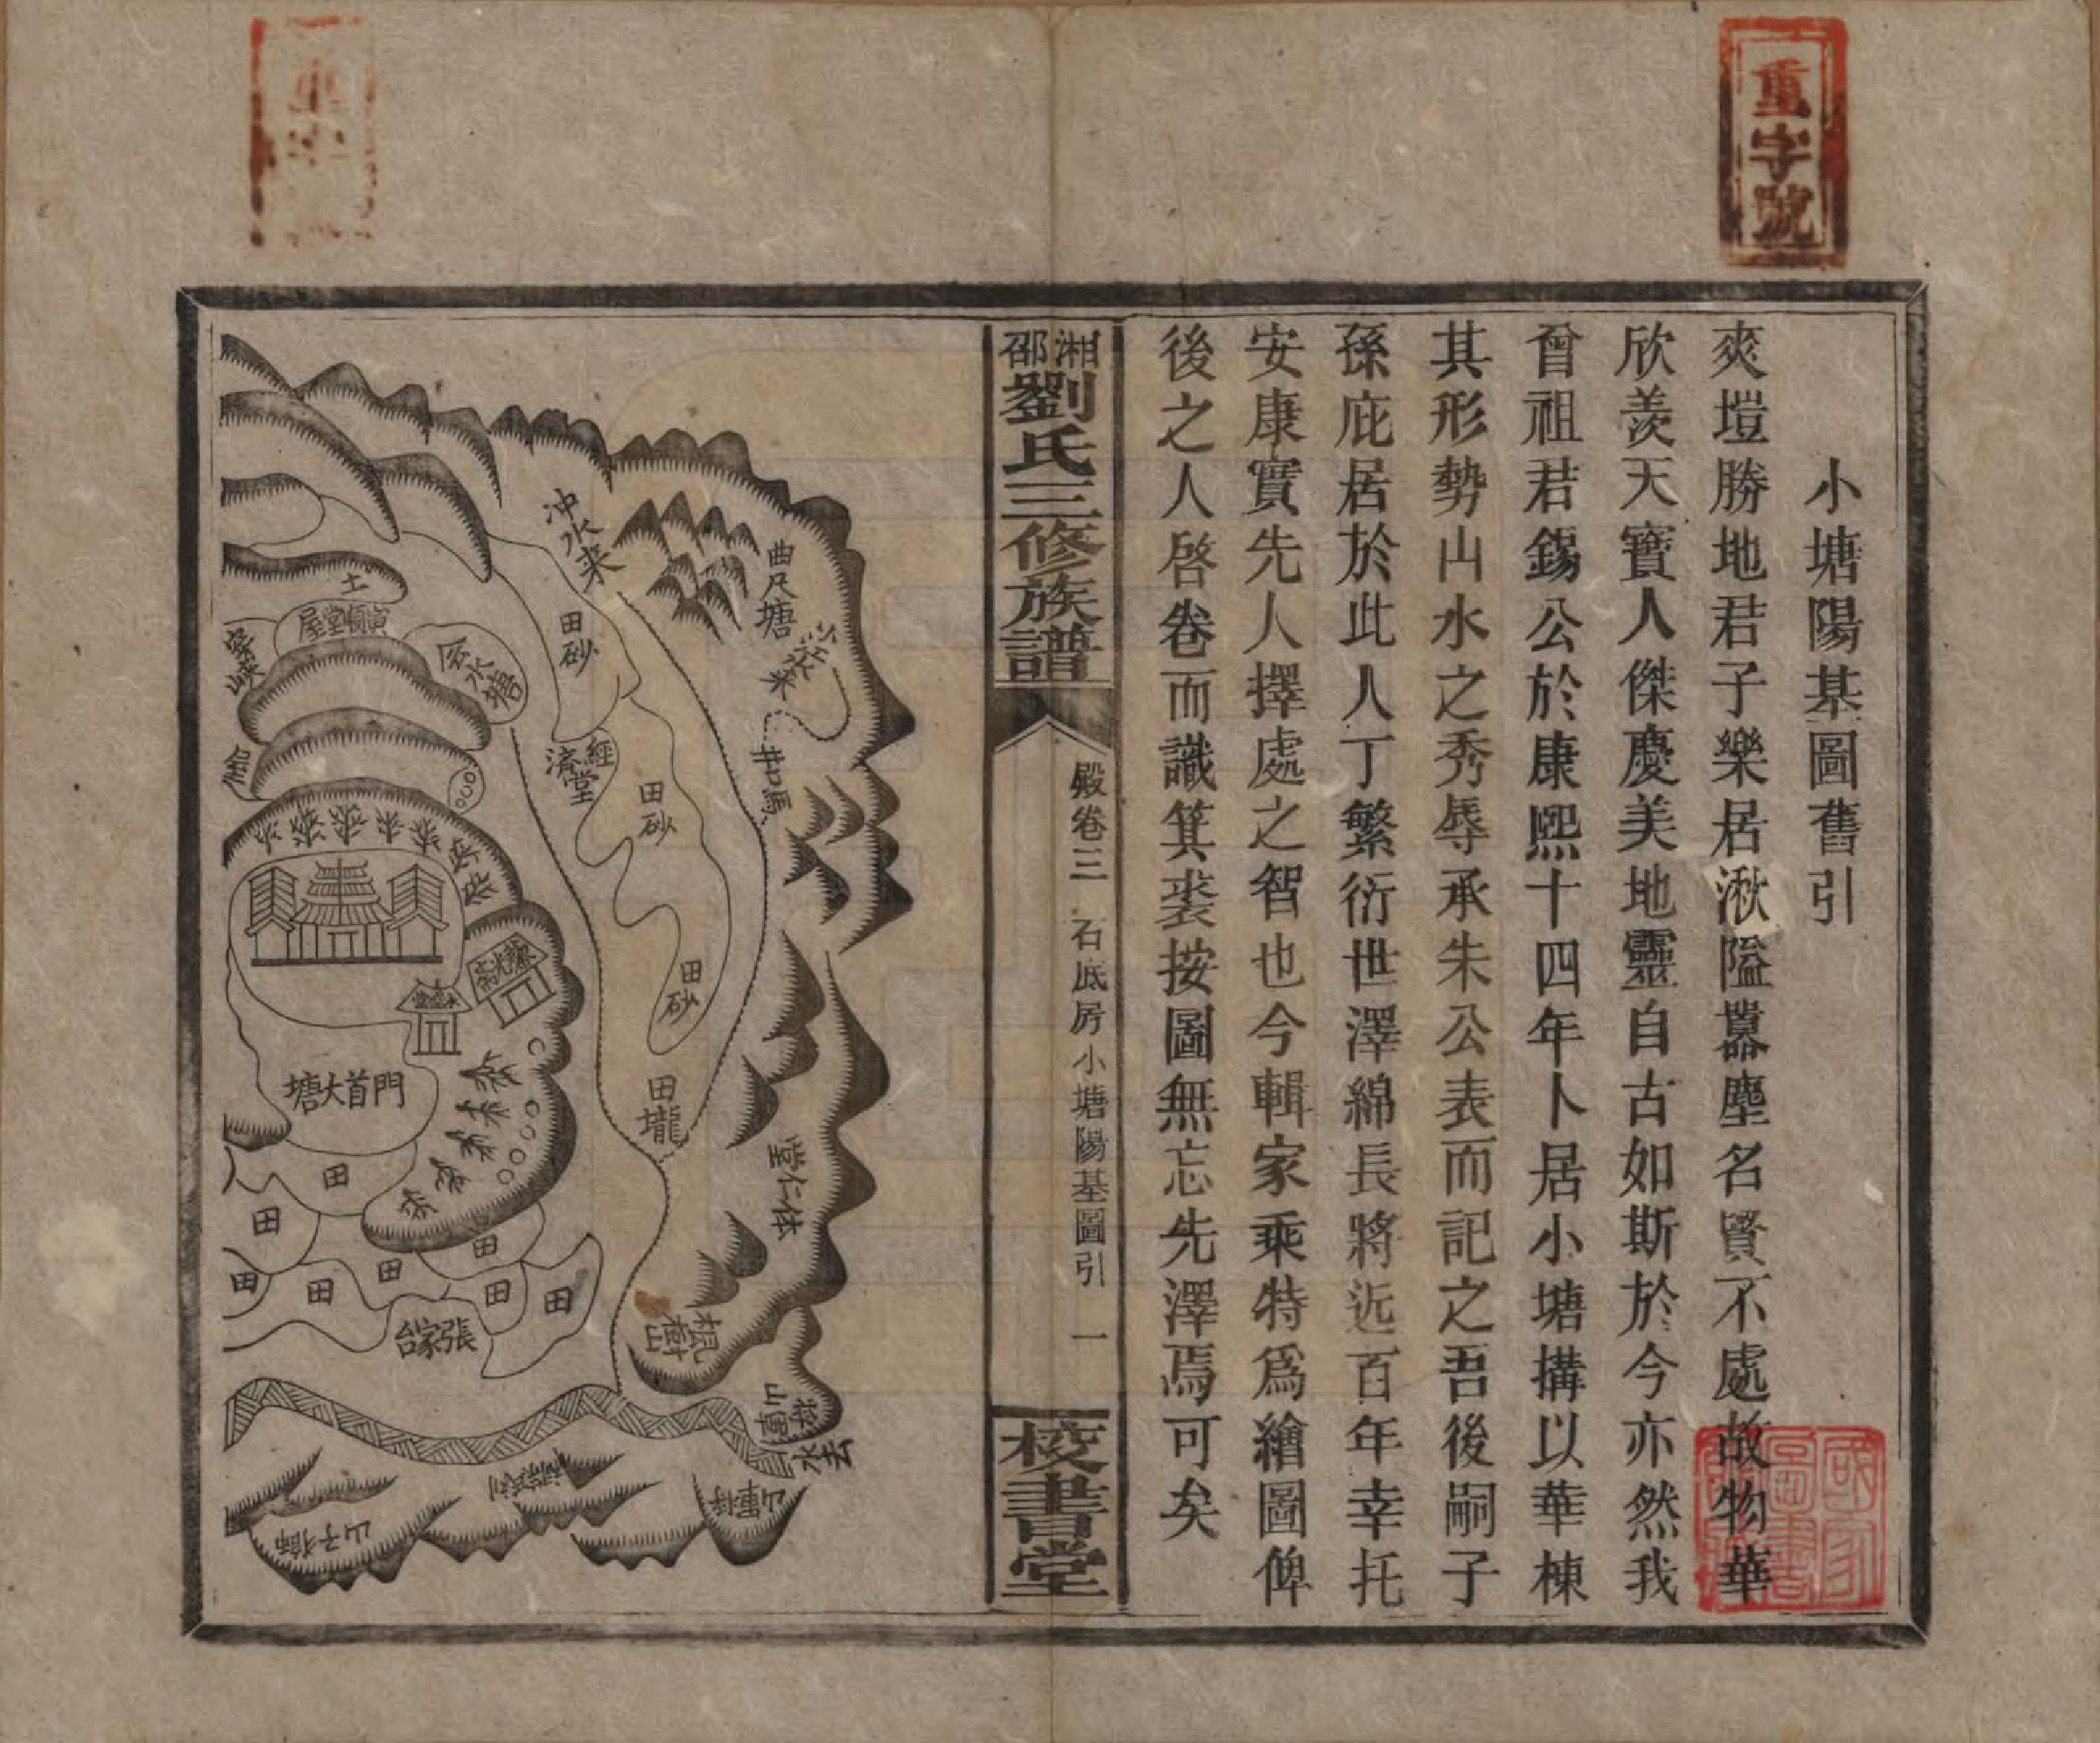 重字號
小塘陽基圖舊引
爽塏勝地君子樂居湫隘囂塵名賢不處故物華
欣羨天寶人傑慶美地靈自古如斯於今亦然我
曾祖君錫公於康熙十四年卜居小塘搆以華棟
其形勢山水之秀辱承朱公表而記之吾後嗣子
孫庇居於此人丁繁衍世澤綿長將近百年幸托
安康實先人擇處之智也今輯家乘特爲繪圖俾
後之人啓卷而識箕裘按圖無忘先澤焉可矣
湘邵劉氏三修族譜
殿卷三
石底房小塘陽基圖引
一
校書堂
冲水来
曲尺塘
田砂
土
寅賓堂屋
經濟堂
田砂
田砂
田壠
門首大塘
堂仁体
楓樹山
田
田
田
田
田
田
田
田
張家台
水去
獅子山